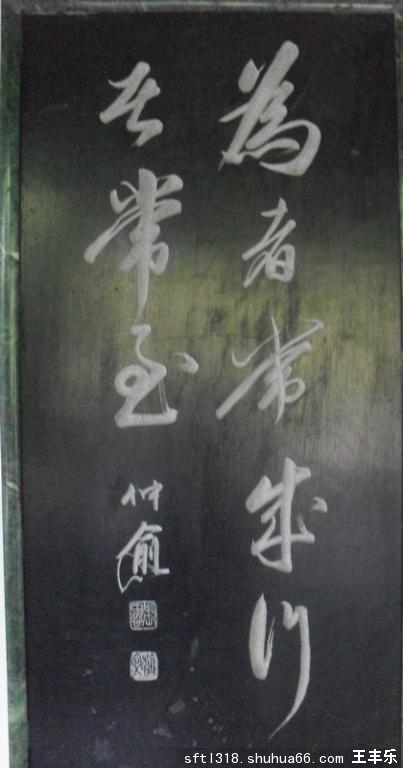 為者常成行
者常至
仲俞
sftl318.shuhua66.com 王丰乐